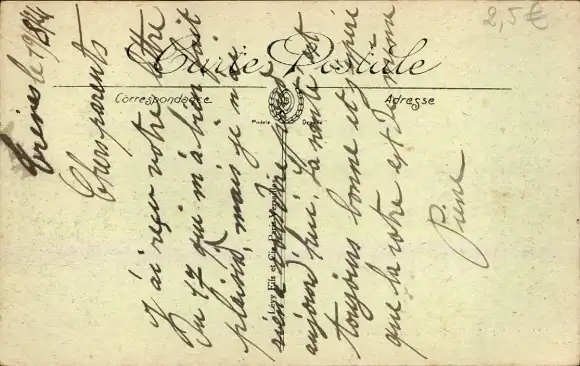 2,5€
Carte Postale
Correspondance
Adresse
Modèle Déposé
Lévy Fils et Cie
le 19/8/14
Chers parents
J'ai reçu votre lettre
du 17 qui m'a bien fait
plaisir, mais je n'ai
rien à vous dire
aujourd'hui. La santé est
toujours bonne et j'espère
que la votre est de même
Pierre